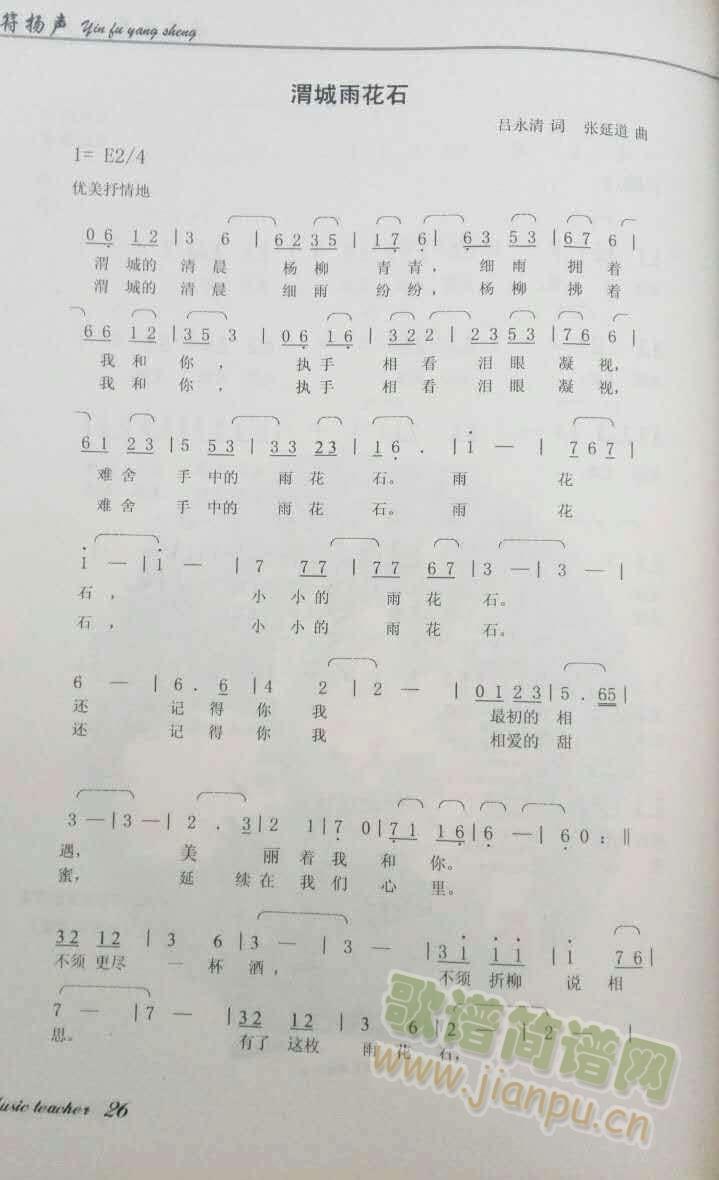 符扬声 Yin fu yang sheng
渭城雨花石
吕永清 词 张延道 曲
1= E2/4
优美抒情地
0 6 1 2 | 3 6 | 6 2 3 5 | 1 7 6 | 6 3 5 3 | 6 7 6 |
渭 城的 清 晨 杨 柳 青 青， 细 雨 拥 着
渭 城的 清 晨 细 雨 纷 纷， 杨 柳 拂 着
6 6 1 2 | 3 5 3 | 0 6 1 6 | 3 2 2 | 2 3 5 3 | 7 6 6 |
我 和 你 ， 执 手 相 看 泪 眼 凝 视，
我 和 你 ， 执 手 相 看 泪 眼 凝 视，
6 1 2 3 | 5 5 3 | 3 3 2 3 | 1 6 . | i — | 7 6 7 |
难 舍 手 中的 雨 花 石。 雨 花
难 舍 手 中的 雨 花 石。 雨 花
i — | i — | 7 7 7 | 7 7 6 7 | 3 — | 3 — |
石 ， 小 小 的 雨 花 石。
石 ， 小 小 的 雨 花 石。
6 — | 6 . 6 | 4 2 | 2 — | 0 1 2 3 | 5 . 6 5 |
还 记 得 你 我 最初的 相
还 记 得 你 我 相爱的 甜
3 — | 3 — | 2 . 3 | 2 1 | 7 0 | 7 1 1 6 | 6 — | 6 0 : ‖
遇， 美 丽 着 我 和 你。
蜜， 延 续 在 我 们 心 里。
3 2 1 2 | 3 6 | 3 — | 3 — | 3 i i i | i 7 6 |
不须 更尽 一 杯 酒， 不须 折柳 说 相
7 — | 7 — | 3 2 1 2 | 3 6 | 2 — | 2 — |
思。 有了 这枚 雨 花 石，
歌谱简谱网
www.jianpu.cn
Music teacher 26